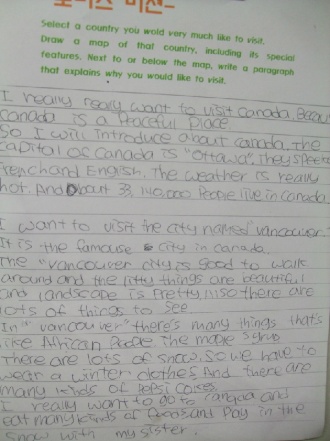 Select a country you wold very much like to visit.
Draw a map of that country, including its special
features. Next to or below the map, write a paragraph
that explains why you would like to visit.
I really really want to visit Canada. Becau
Canada is a Peaceful Place
So I will introduce about canada. the
capital of Canada is "Ottawa". They speak
French and English. The weather is really
hot. And about 33, 140,000 People live in canada
I want to visit the city named Vancouver.
It is the famouse city in canada.
The "vancouver city is good to walk
around and the things are beautiful
and landscape is Pretty. Also there are
lots of things to see
In "vancouver" there's many things that's
like African People the maple syrup
There are lots of snow. so we have to
wear a winter clothes And there are
many kinds of
I really want to go to canada and
Eat many kinds of and Play in the
snow with my sister.